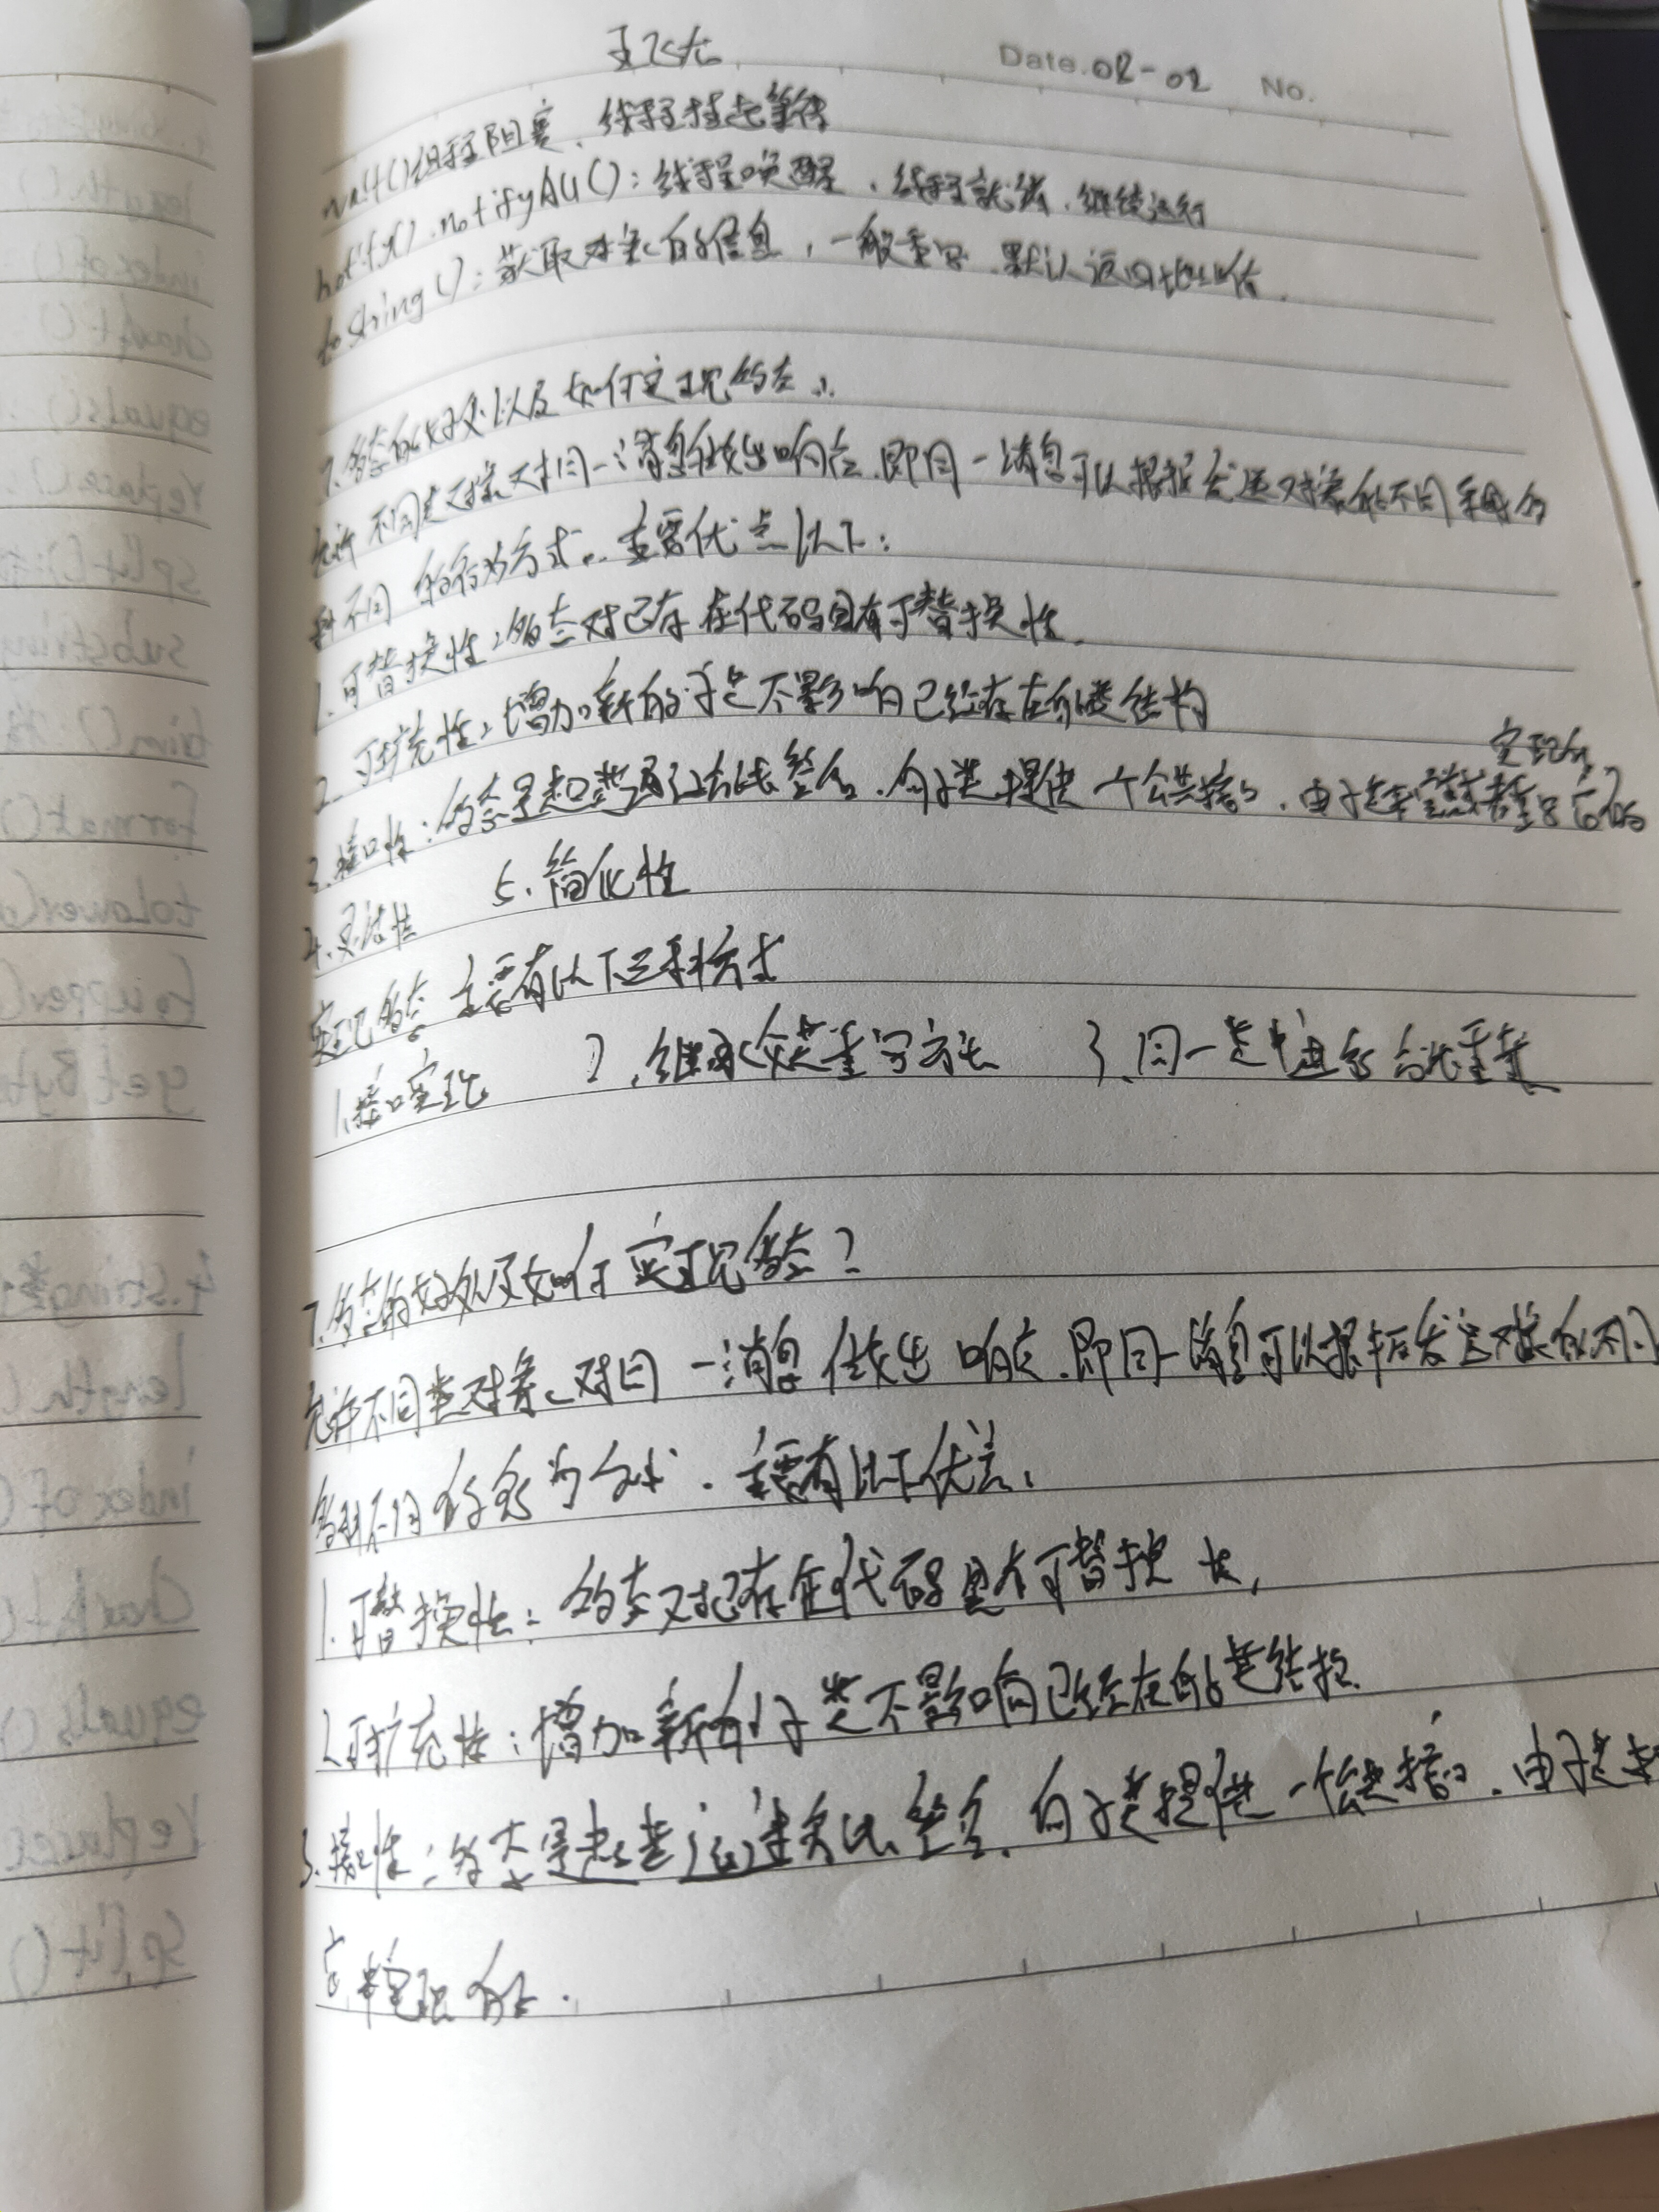 王飞龙
Date.02-02 No.
wait()线程阻塞、线程挂起等待
notify().notifyAll():线程唤醒、线程就绪、继续运行
toString():获取对象的信息,一般重写.默认返回地址值.
7.多态的好处以及如何实现多态
允许不同类对象对同一消息做出响应.即同一消息可以根据发送对象的不同采用多
种不同的行为方式.主要优点以下:
1.可替换性:多态对已存在代码具有可替换性.
2.可扩充性:增加新的子类不影响已经存在的类结构
实现的
3.接口性:多态是超类通过方法签名.向子类提供一个公共接口.由子类来重写
4.灵活性 5.简化性
实现多态主要有以下三种方式
1.接口实现 2.继承父类重写方法 3.同一类中进行方法重载
7.多态的好处及如何实现多态?
允许不同类对象对同一消息做出响应.即同一消息可以根据发送对象的不同
多种不同的行为方式.主要有以下优点:
1.可替换性:多态对已存在代码具有可替换性,
2.可扩充性:增加新的子类不影响已经存在的类结构.
3.接口性:多态是超类通过方法签名.向子类提供一个公共接口.由子类来
实现的.
length()
indexOf()
charAt()
equals()
replace()
split()
substring
trim()
format()
toLower
toUpper
getByte
4.String类
length(
indexOf(
charAt(
equals()
replace
split()